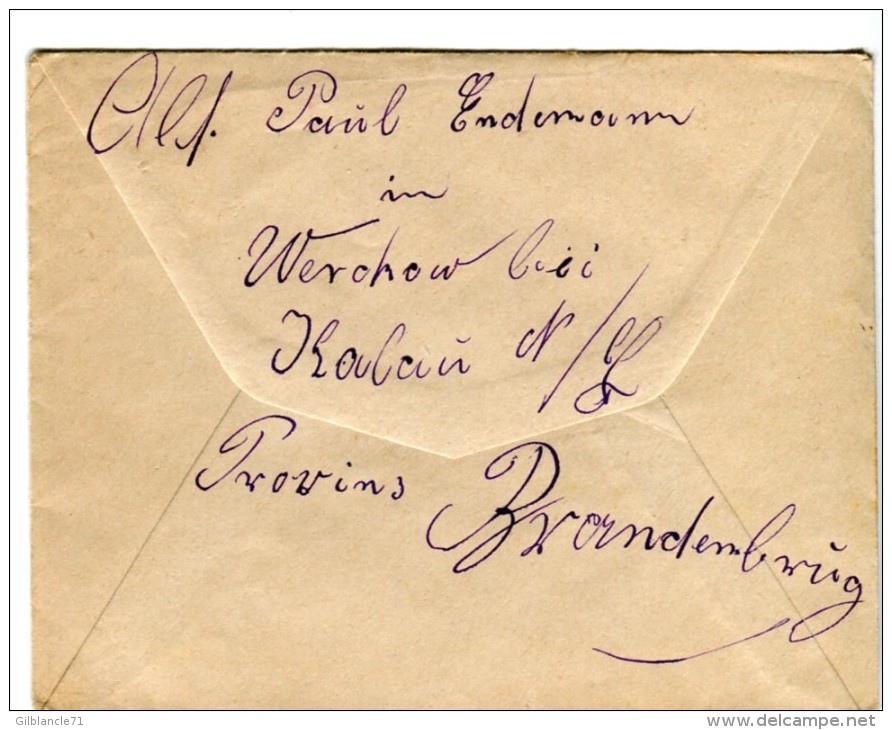 Abs. Paul Endemann
in
Werchow bei
Kalau N/L
Provins
Brandenbrug
Gilblancle71
www.delcampe.net